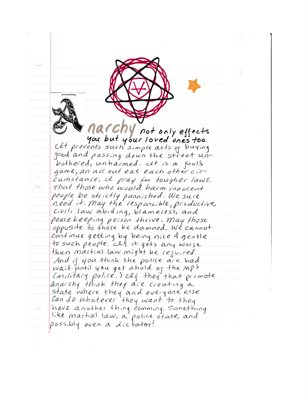 Anarchy not only effects
you but your loved ones too.
It prevents such simple acts of buying
food and passing down the street un-
bothered, unharmed. It is a fool's
game, an all out eat each other cir-
cumstance. I pray for tougher laws.
That those who would harm innocent
people be strictly punnished. We sure
need it. May the responsible, productive,
civil: law abiding, blameress, and
peace keeping person thrive. May those
opposite to those be damned. We cannot
continue getting by being nice & gentle
to such people. If it gets any worse
then martial law might be required.
And if you think the police are bad
wait until you get ahold of the MP's
(military police.) If they that promote
anarchy think they are creating a
state where they and everyone else
can do whatever they want to they
have another thing comming. Something
like martial law, a police state, and
possibly even a dictator!